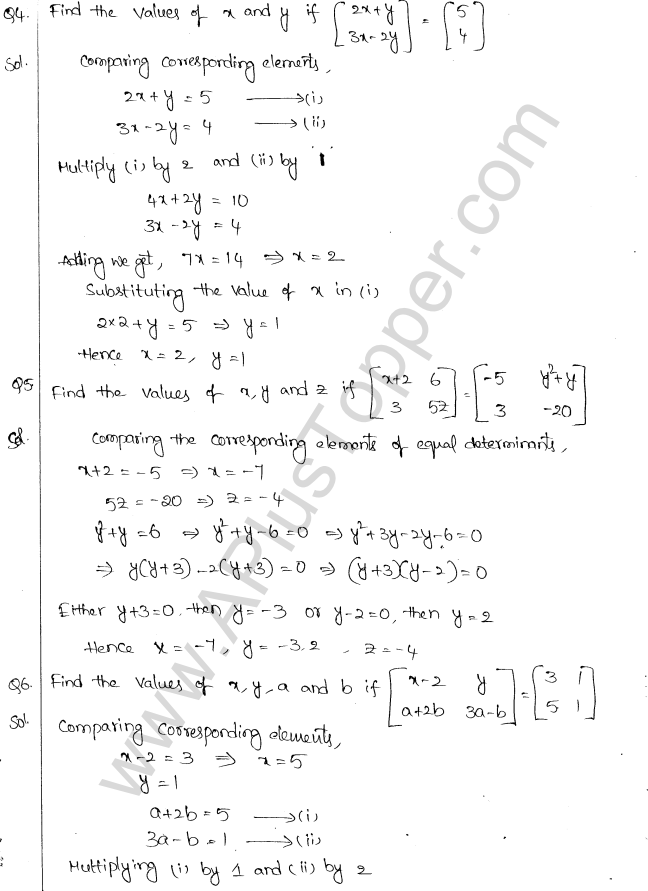 Q4. Find the values of x and y if [2x+y 3x-2y] = [5 4]
Sol. Comparing corresponding elements,
2x+y = 5 ⟶(i)
3x-2y = 4 ⟶(ii)
Multiply (i) by 2 and (ii) by 1
4x+2y = 10
3x-2y = 4
Adding we get, 7x=14 ⇒ x=2
Substituting the value of x in (i)
2×2+y=5 ⇒ y=1
Hence x=2, y=1
Q5 Find the values of x,y and z if [x+2 6 3 5z] = [-5 y²+y 3 -20]
Sol. Comparing the corresponding elements of equal determinants,
x+2 = -5 ⇒ x=-7
5z = -20 ⇒ z=-4
y²+y=6 ⇒ y²+y-6=0 ⇒ y²+3y-2y-6=0
⇒ y(y+3)-2(y+3)=0 ⇒ (y+3)(y-2)=0
Either y+3=0, then y=-3 or y-2=0, then y=2
Hence x=-7, y=-3,2, z=-4
Q6. Find the values of x,y,a and b if [x-2 y a+2b 3a-b] = [3 1 5 1]
Sol. Comparing corresponding elements,
x-2=3 ⇒ x=5
y=1
a+2b=5 ⟶(i)
3a-b=1 ⟶(ii)
Multiplying (i) by 1 and (ii) by 2
www.APlusTopper.com